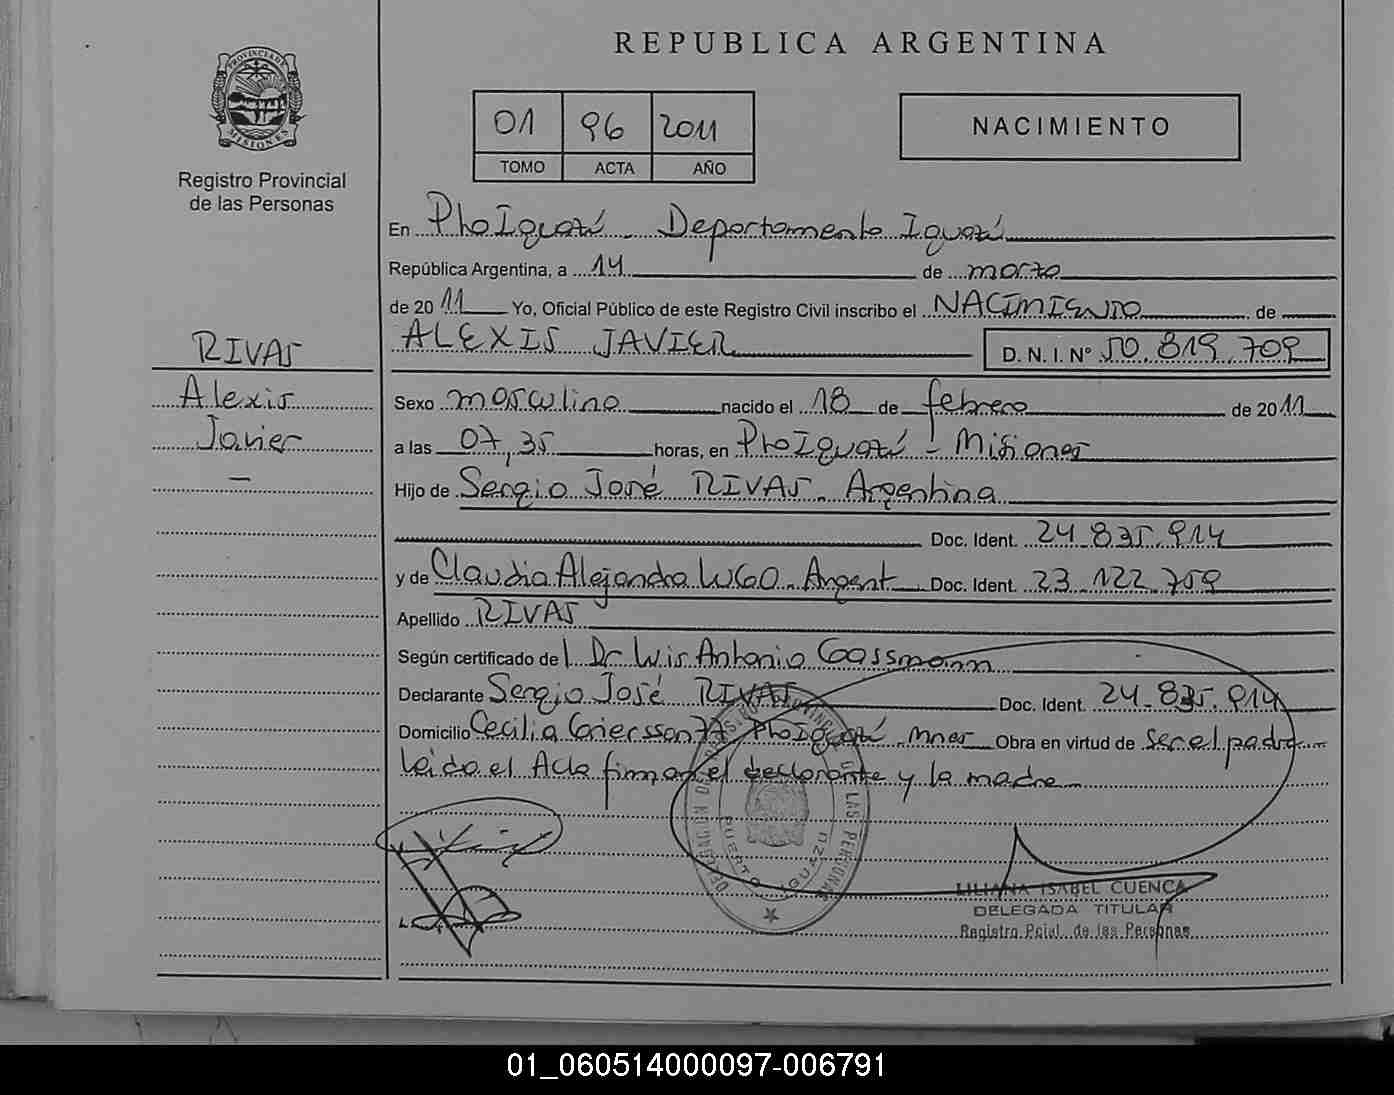 REPUBLICA ARGENTINA
PROVINCIA DE MISIONES
Registro Provincial
de las Personas
01 96 2011
TOMO ACTA AÑO
NACIMIENTO
En Pto Iguazú - Departamento Iguazú
República Argentina, a 14 de marzo
de 2011 Yo, Oficial Público de este Registro Civil inscribo el NACIMIENTO de
ALEXIS JAVIER D. N. I. Nº 50.819.709
RIVAS
Alexis
Javier
—
Sexo masculino nacido el 18 de febrero de 2011
a las 07,35 horas, en Pto Iguazú - Misiones
Hijo de Sergio José RIVAS. Argentina
Doc. Ident. 24.835.914
y de Claudia Alejandra LUGO. Argent Doc. Ident. 23.122.759
Apellido RIVAS
Según certificado del Dr Luis Antonio Gassmann
Declarante Sergio José RIVAS Doc. Ident. 24.835.914
Domicilio Cecilia Griersson 77 Pto Iguazú. Mnes Obra en virtud de ser el padre
Leida el Acta firman el declarante y la madre
DELEGACION DE REGISTRO PROVINCIAL DE LAS PERSONAS
PUERTO IGUAZU
LILIANA ISABEL CUENCA
DELEGADA TITULAR
Registro Pcial. de las Personas
01_060514000097-006791